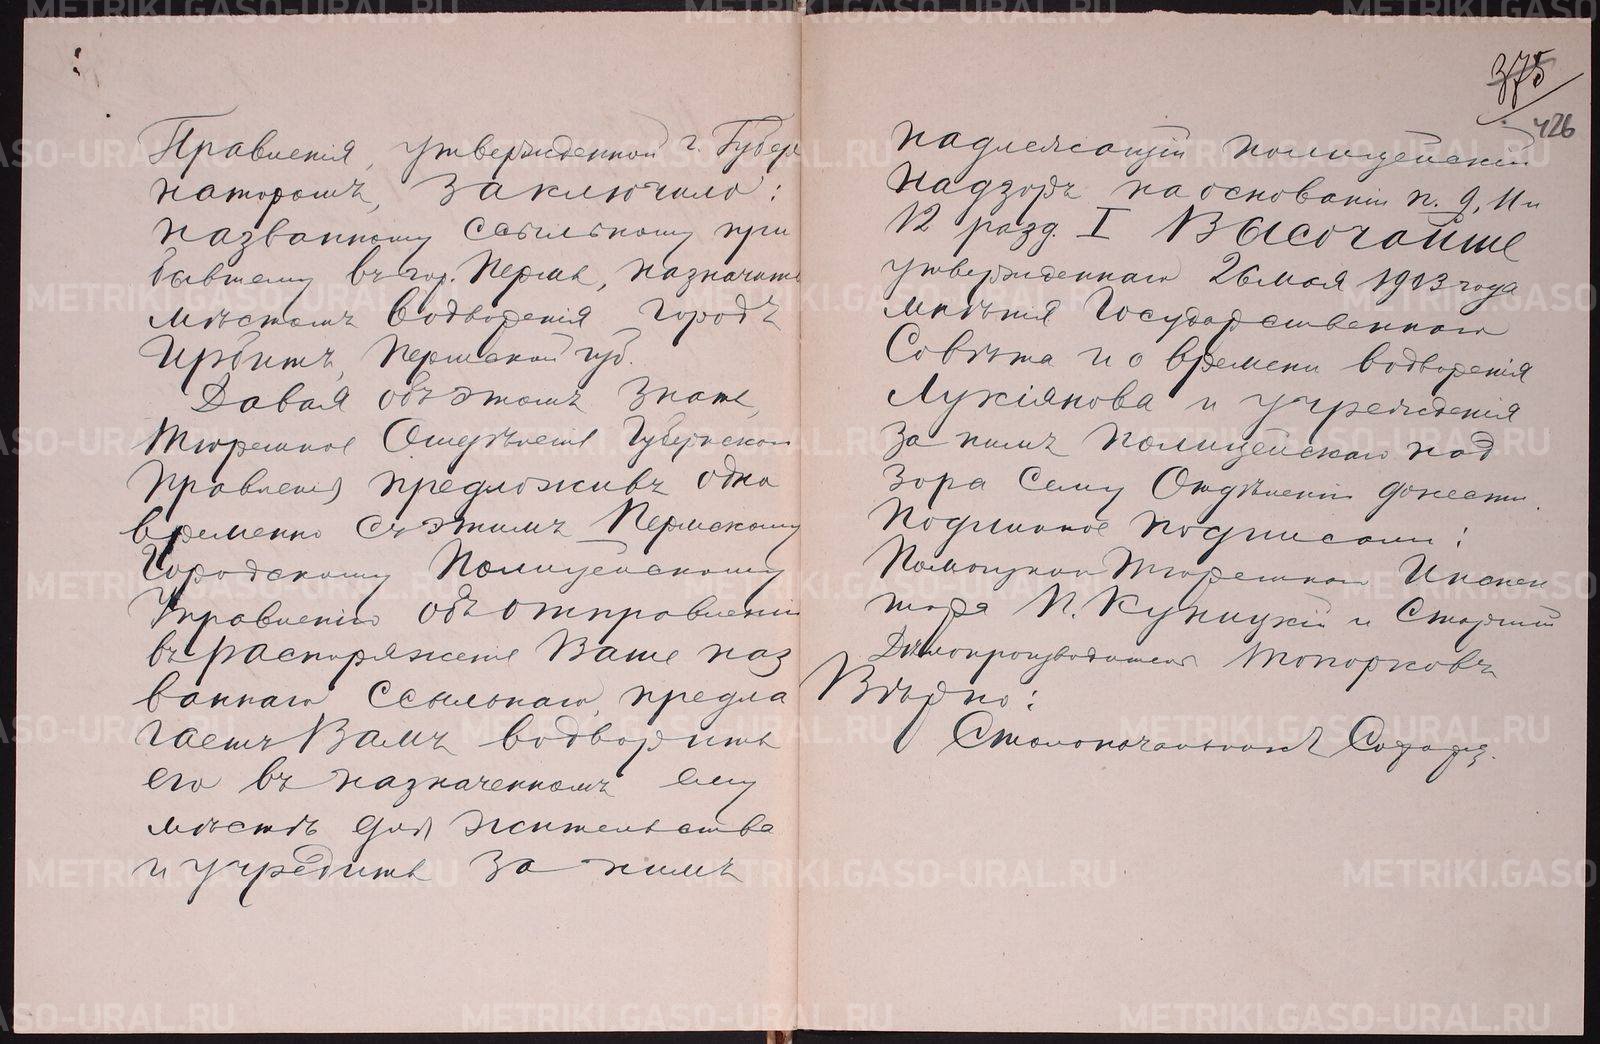 375
426
Правленія, утвержденной г. Губер
наторомъ, заключило:
названному ссыльному при
бывшему въ гор. Пермь, назначить
мѣстомъ водворенія городъ
Ирбитъ, Пермской губ.
Давая объ этомъ знать,
Тюремное Отдѣленіе Губернскаго
Правленія, предложивъ одно
временно съ этимъ Пермскому
Городскому Полицейскому
Управленію объ отправленіи
въ распоряженіе Ваше наз
ваннаго ссыльнаго, предла
гаетъ Вамъ водворить
его въ назначенномъ ему
мѣстѣ для жительства
и учредить за нимъ
надлежащій полицейскій
надзоръ на основаніи п. 9, 11 и
12 разд. I Высочайше
утвержденнаго 26 мая 1913 года
мнѣнія Государственнаго
Совѣта и о времени водворенія
Лукіянова и учрежденія
за нимъ полицейскаго над
зора сему Отдѣленію донести.
Подлинное подписали:
Помощникъ Тюремнаго Инспек
тора П. Куницкій и Старшій
Дѣлопроизводитель Топорковъ
Вѣрно:
Столоначальникъ
METRIKI.GASO-URAL.RU